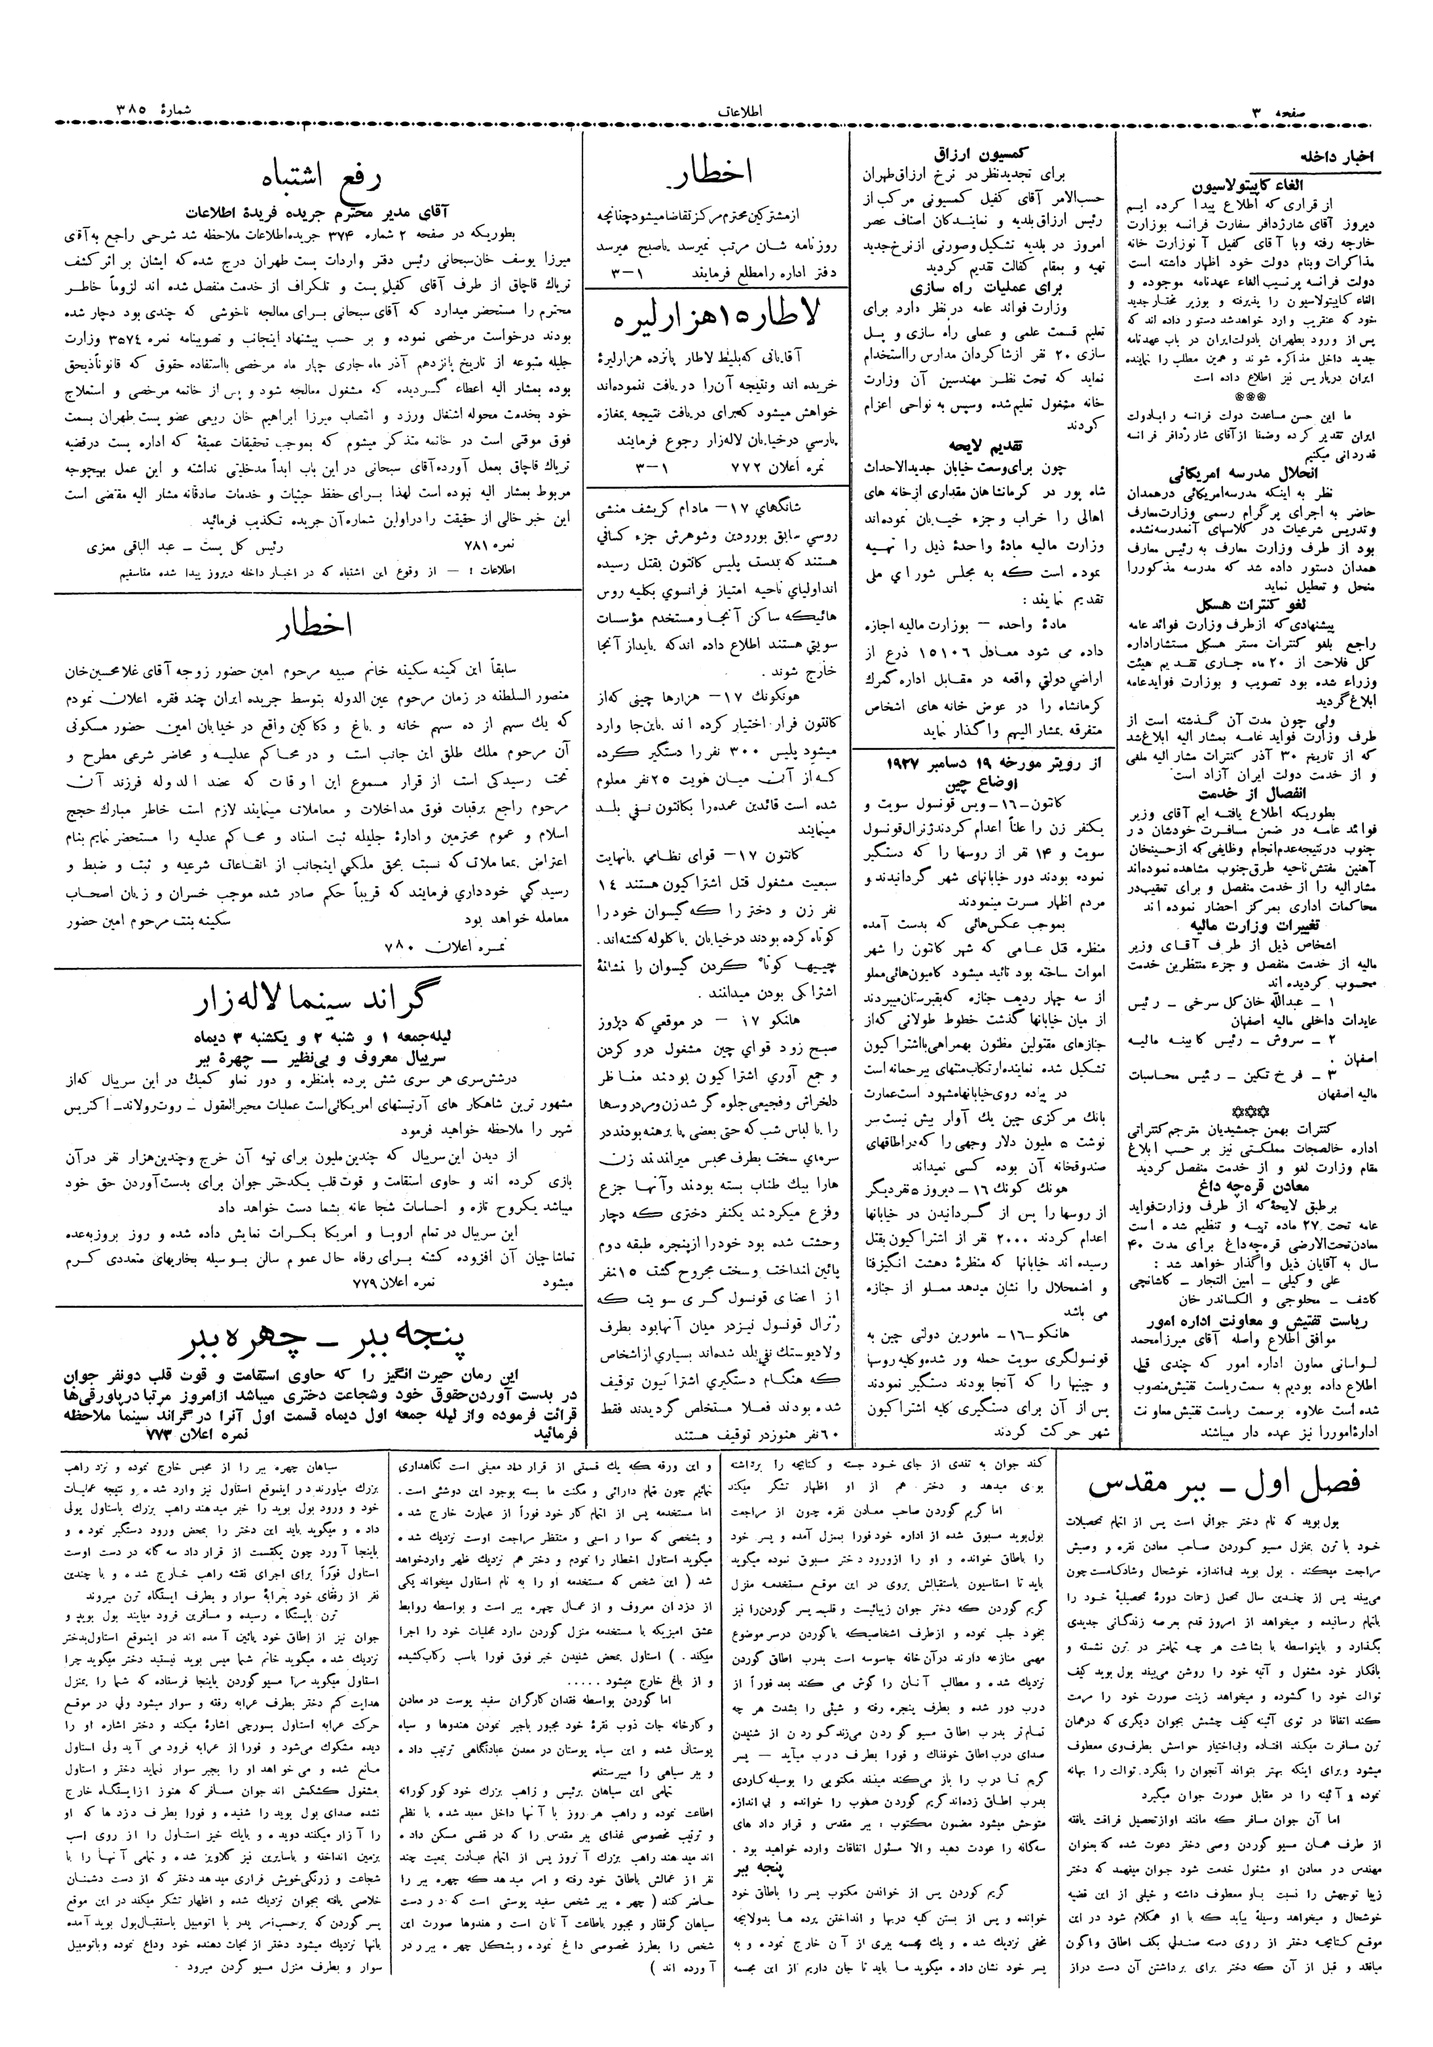 صفحه ۳
اطلاعات
شمارهٔ ۳۸۵
اخبار داخله
الغاء کاپیتولاسیون
از قراری که اطلاع پیدا کرده ایم
دیروز آقای شارژدافر سفارت فرانسه بوزارت
خارجه رفته وبا آقای کفیل آنوزارت خانه
مذاکرات وبنام دولت خود اظهار داشته است
دولت فرانسه پرنسیب الغاء عهدنامه موجوده و
الغاء کاپیتولاسیون را پذیرفته و بوزیر مختار جدید
خود که عنقریب وارد خواهدشد دستور داده اند که
پس از ورود بطهران بادولت ایران در باب عهدنامه
جدید داخل مذاکره شوند و همین مطلب را نماینده
ایران در پاریس نیز اطلاع داده است
ما این حسن مساعدت دولت فرانسه را بادولت
ایران تقدیر کرده وضمنا از آقای شارژدافر فرانسه
قدردانی میکنیم
انحلال مدرسه امریکائی
نظر به اینکه مدرسه امریکائی درهمدان
حاضر به اجرای پرگرام رسمی وزارت معارف
وتدریس شرعیات در کلاسهای آنمدرسه نشده
بود از طرف وزارت معارف به رئیس معارف
همدان دستور داده شد که مدرسه مذکور را
منحل و تعطیل نماید
لغو کنترات هسکل
پیشنهادی که ازطرف وزارت فوائد عامه
راجع بلغو کنترات مستر هسکل مستشار اداره
کل فلاحت از ۲۰ ماه جاری تقدیم هیئت
وزراء شده بود تصویب و بوزارت فوایدعامه
ابلاغ گردید
ولی چون مدت آن گذشته است از
طرف وزارت فواید عامه بمشار الیه ابلاغ شد
که از تاریخ ۳۰ آذر کنترات مشار الیه ملغی
و از خدمت دولت ایران آزاد است
انفصال از خدمت
بطوریکه اطلاع یافته ایم آقای وزیر
فوائد عامه در ضمن مسافرت خودشان در
جنوب درنتیجه عدم انجام وظایفی که ازحسینخان
آهنین مفتش ناحیه طرق جنوب مشاهده نموده اند
مشار الیه را از خدمت منفصل و برای تعقیب در
محاکمات اداری بمرکز احضار نموده اند
تغییرات وزارت مالیه
اشخاص ذیل از طرف آقای وزیر
مالیه از خدمت منفصل و جزء منتظرین خدمت
محسوب گردیده اند
۱ ــ عبدالله خان کل سرخی ــ رئیس
عایدات داخلی مالیه اصفهان
۲ ــ سروش ــ رئیس کابینه مالیه
اصفهان .
۳ ــ فرخ تکین ــ رئیس محاسبات
مالیه اصفهان
کنترات بهمن جمشیدیان مترجم کنتراتی
اداره خالصجات مملکتی نیز بر حسب ابلاغ
مقام وزارت لغو و از خدمت منفصل گردید
معادن قره چه داغ
برطبق لایحهٔ که از طرف وزارت فواید
عامه تحت ۲۷ ماده تهیه و تنظیم شده است
معادن تحت الارضی قره چه داغ برای مدت ۴۰
سال به آقایان ذیل واگذار خواهد شد :
علی وکیلی ــ امین التجار ــ کاشانچی
کاشف ــ محلوجی و الکساندر خان
ریاست تفتیش و معاونت اداره امور
موافق اطلاع واصله آقای میرزامحمد
لواسانی معاون اداره امور که چندی قبل
اطلاع داده بودیم به سمت ریاست تفتیش منصوب
شده است علاوه برسمت ریاست تفتیش معاونت
اداره امور را نیز عهده دار میباشند
کمسیون ارزاق
برای تجدیدنظر در نرخ ارزاق طهران
حسب الامر آقای کفیل کمسیونی مرکب از
رئیس ارزاق بلدیه و نمایندگان اصناف عصر
امروز در بلدیه تشکیل وصورتی ازنرخ جدید
تهیه و بمقام کفالت تقدیم گردید
برای عملیات راه سازی
وزارت فوائد عامه در نظر دارد برای
تعلیم قسمت علمی و عملی راه سازی و پل
سازی ۲۰ نفر ازشاکردان مدارس رااستخدام
نماید که تحت نظر مهندسین آن وزارت
خانه مشغول تعلیم شده وسپس به نواحی اعزام
گردند
تقدیم لایحه
چون برای وسعت خیابان جدیدالاحداث
شاه پور در کرمانشاهان مقداری ازخانه های
اهالی را خراب وجزء خیابان نموده اند
وزارت مالیه مادهٔ واحدهٔ ذیل را تهیه
نموده است که به مجلس شورای ملی
تقدیم نمایند :
مادهٔ واحده ــ بوزارت مالیه اجازه
داده می شود معادل ۱۵۱۰۶ ذرع از
اراضی دولتی واقعه در مقابل اداره گمرک
کرمانشاه را در عوض خانه های اشخاص
متفرقه بمشار الیهم واگذار نماید
از رویتر مورخه ۱۹ دسامبر ۱۹۲۷
اوضاع چین
کانتون ــ۱۶ــ ویس قونسول سویت و
یکنفر زن را علناً اعدام کردند ژنرال قونسول
سویت و ۱۴ نفر از روسها را که دستگیر
نموده بودند دور خیابانهای شهر گردانیدند و
مردم اظهار مسرت مینمودند
بموجب عکس هائی که بدست آمده
منظره قتل عامی که شهر کانتون را شهر
اموات ساخته بود تائید میشود کامیون هائی مملو
از سه چهار ردیف جنازه که بقبرستان میبردند
از میان خیابانها گذشت خطوط طولانی که از
جنازه های مقتولین مظنون بهمراهی بااشتراکیون
تشکیل شده نماینده ارتکاب منتهای بیرحمانه است
در پیاده روی خیابانها مشهود است عمارت
بانک مرکزی چین یک آوار بیش نیست سر
نوشت ۵ ملیون دلار وجهی را که در اطاقهای
صندوقخانه آن بوده کسی نمیداند
هونک کونک ۱۶ــ دیروز ۵ نفر دیگر
از روسها را پس از گردانیدن در خیابانها
اعدام کردند ۲۰۰۰ نفر از اشتراکیون بقتل
رسیده اند خیابانها که منظرهٔ دهشت انگیز فنا
و اضمحلال را نشان میدهد مملو از جنازه
می باشد
هانکو ــ۱۶ــ مامورین دولتی چین به
قونسولگری سویت حمله ور شده و کلیه روسها
و چینیها را که آنجا بودند دستگیر نمودند
پس از آن برای دستگیری کلیه اشتراکیون
شهر حرکت کردند
اخطار
ازمشترکین محترم مرکز تقاضا میشود چنانچه
روزنامه شان مرتب نمیرسد یاصبح میرسد
دفتر اداره رامطلع فرمایند ۱ــ۳
لاطار ۱۵ هزار لیره
آقایانی که بلیط لاطار پانزده هزار لیرهٔ
خریده اند ونتیجه آن را دریافت ننموده اند
خواهش میشود که برای دریافت نتیجه بمغازه
پارسی درخیابان لاله زار رجوع فرمایند
نمره اعلان ۷۷۲ ۱ــ۳
شانگهای ۱۷ــ مادام کریشف منشی
روسی سابق بورودین وشوهرش جزء کسانی
هستند که بدست پلیس کانتون بقتل رسیده
اند اولیای ناحیه امتیاز فرانسوی بکلیه روس
هائیکه ساکن آنجا و مستخدم مؤسسات
سویتی هستند اطلاع داده اند که باید از آنجا
خارج شوند .
هونکونک ۱۷ــ هزارها چینی که از
کانتون فرار اختیار کرده اند باین جا وارد
میشود پلیس ۳۰۰ نفر را دستگیر کرده
که از آن میان هویت ۲۵ نفر معلوم
شده است قائدین عمده را بکانتون نفی بلد
مینمایند
کانتون ۱۷ــ قوای نظامی بانهایت
سبعیت مشغول قتل اشتراکیون هستند ۱۴
نفر زن و دختر را که گیسوان خود را
کوتاه کرده بودند درخیابان با گلوله کشته اند .
چینیها کوتاه کردن گیسوان را نشانهٔ
اشتراکی بودن میدانند .
هانکو ۱۷ ــ در موقعی که دیروز
صبح زود قوای چین مشغول درو کردن
و جمع آوری اشتراکیون بودند مناظر
دلخراش و فجیعی جلوه گر شد زن و مرد روسها
را با لباس شب که حتی بعضی پا برهنه بودند در
سرمای سخت بطرف محبس میراندند زن
هارا بیک طناب بسته بودند و آنها جزع
وفزع میکردند یکنفر دختری که دچار
وحشت شده بود خود را ازپنجره طبقه دوم
پائین انداخت و سخت مجروح گشت ۱۵ نفر
از اعضای قونسول گری سویت که
ژنرال قونسول نیز در میان آنها بود بطرف
ولادیوستک نفی بلد شده اند بسیاری از اشخاص
که هنگام دستگیری اشتراکیون توقیف
شده بودند فعلا مستخلص گردیدند فقط
۶۰ نفر هنوز در توقیف هستند
رفع اشتباه
آقای مدیر محترم جریده فریدهٔ اطلاعات
بطوریکه در صفحه ۲ شماره ۳۷۴ جریده اطلاعات ملاحظه شد شرحی راجع به آقای
میرزا یوسف خان سبحانی رئیس دفتر واردات پست طهران درج شده که ایشان بر اثر کشف
تریاک قاچاق از طرف آقای کفیل پست و تلگراف از خدمت منفصل شده اند لزوماً خاطر
محترم را مستحضر میدارد که آقای سبحانی برای معالجه ناخوشی که چندی بود دچار شده
بودند درخواست مرخصی نموده و بر حسب پیشنهاد اینجانب و تصویبنامه نمره ۳۵۷۴ وزارت
جلیله متبوعه از تاریخ پانزدهم آذر ماه جاری چهار ماه مرخصی بااستفاده حقوق که قانوناً ذیحق
بوده بمشار الیه اعطاء گردیده که مشغول معالجه شود و پس از خاتمه مرخصی و استعلاج
خود بخدمت محوله اشتغال ورزد و انتصاب میرزا ابراهیم خان ربیعی عضو پست طهران بسمت
فوق موقتی است در خاتمه متذکر میشوم که بموجب تحقیقات عمیقهٔ که اداره پست درقضیه
تریاک قاچاق بعمل آورده آقای سبحانی در این باب ابداً مدخلیتی نداشته و این عمل بهیچوجه
مربوط بمشار الیه نبوده است لهذا برای حفظ حیثیات و خدمات صادقانه مشار الیه مقتضی است
این خبر خالی از حقیقت را در اولین شماره آن جریده تکذیب فرمائید
نمره ۷۸۱ رئیس کل پست ــ عبد الباقی معزی
اطلاعات : ــ از وقوع این اشتباه که در اخبار داخله دیروز پیدا شده متاسفیم
اخطار
سابقاً این کمینه سکینه خانم صبیه مرحوم امین حضور زوجه آقای غلامحسین خان
منصور السلطنه در زمان مرحوم عین الدوله بتوسط جریده ایران چند فقره اعلان نمودم
که یک سهم از ده سهم خانه و باغ و دکاکین واقع در خیابان امین حضور مسکونی
آن مرحوم ملک طلق این جانب است و در محاکم عدلیه و محاضر شرعی مطرح و
تحت رسیدگی است از قرار مسموع این اوقات که عضد الدوله فرزند آن
مرحوم راجع برقبات فوق مداخلات و معاملات مینمایند لازم است خاطر مبارک حجج
اسلام و عموم محترمین و ادارهٔ جلیله ثبت اسناد و محاکم عدلیه را مستحضر نمایم بنام
اعتراض بمعاملاتی که نسبت بحق ملکی اینجانب از انتفاعات شرعیه و ثبت و ضبط و
رسیدگی خودداری فرمایند که قریباً حکم صادر شده موجب خسران و زیان اصحاب
معامله خواهد بود سکینه بنت مرحوم امین حضور
نمره اعلان ۷۸۰
گراند سینما لاله زار
لیله جمعه ۱ و شنبه ۲ و یکشنبه ۳ دیماه
سریال معروف و بی نظیر ــ چهرهٔ ببر
درشش سری هر سری شش پرده بامنظره و دور نماو کمیک در این سریال که از
مشهور ترین شاهکار های آرتیستهای امریکائی است عملیات محیرالعقول ــ روت رولاند ــ اکتریس
شهیر را ملاحظه خواهید فرمود
از دیدن این سریال که چندین ملیون برای تهیه آن خرج وچندین هزار نفر درآن
بازی کرده اند و حاوی استقامت و قوت قلب یکدختر جوان برای بدست آوردن حق خود
میباشد یکروح تازه و احساسات شجاعانه بشما دست خواهد داد
این سریال در تمام اروپا و امریکا بکرات نمایش داده شده و روز بروز بعده
تماشاچیان آن افزوده گشته برای رفاه حال عموم سالن بوسیله بخاریهای متعددی گرم
میشود نمره اعلان ۷۷۹
پنجه ببر ــ چهره ببر
این رمان حیرت انگیز را که حاوی استقامت و قوت قلب دونفر جوان
در بدست آوردن حقوق خود وشجاعت دختری میباشد ازامروز مرتبا درپاورقی ها
قرائت فرموده واز لیله جمعه اول دیماه قسمت اول آنرا در گراند سینما ملاحظه
فرمائید نمره اعلان ۷۷۳
فصل اول ــ ببر مقدس
بول بوید که نام دختر جوانی است پس از اتمام تحصیلات
خود با ترن بمنزل مسیو گوردن صاحب معادن نقره و وصیش
مراجعت میکند . بول بوید بی اندازه خوشحال وشادکامست چون
می بیند پس از چندین سال تحمل زحمات دورهٔ تحصیلیهٔ خود را
باتمام رسانیده و میخواهد از امروز قدم بعرصه زندگانی جدیدی
بگذارد و باینواسطه با بشاشت هر چه تمامتر در ترن نشسته و
بافکار خود مشغول و آتیه خود را روشن می بیند بول بوید کیف
توالت خود را گشوده و میخواهد زینت صورت خود را مرمت
کند اتفاقا در توی آئینه کیف چشمش بجوان دیگری که درهمان
ترن مسافرت میکند افتاده وبی اختیار حواسش بطرف وی معطوف
میشود وبرای اینکه بهتر بتواند آنجوان را بنگرد توالت را بهانه
نموده و آئینه را در مقابل صورت جوان میگیرد
اما آن جوان مسافر که مانند او از تحصیل فراغت یافته
از طرف همان مسیو گوردن وصی دختر دعوت شده که بعنوان
مهندس در معادن او مشغول خدمت شود جوان میفهمد که دختر
زیبا توجهش را نسبت باو معطوف داشته و خیلی از این قضیه
خوشحال و میخواهد وسیلهٔ بیابد که با او همکلام شود در این
موقع کتابچه دختر از روی دسته صندلی بکف اطاق واگون
میافتد و قبل از آن که دختر برای برداشتن آن دست دراز
کند جوان به تندی از جای خود جسته و کتابچه را برداشته
بوی میدهد و دختر هم از او اظهار تشکر میکند
اما گریم گوردن صاحب معادن نقره چون از مراجعت
بول بوید مسبوق شده از اداره خود فورا بمنزل آمده و پسر خود
را باطاق خوانده و او را ازورود دختر مسبوق نموده میگوید
باید تا استاسیون باستقبالش بروی در این موقع مستخدمه منزل
گریم گوردن که دختر جوان زیبائیست و قلب پسر گوردن را نیز
بخود جلب نموده و ازطرف اشخاصیکه باگوردن درسر موضوع
مهمی منازعه دارند در آن خانه جاسوسه است بدرب اطاق گوردن
نزدیک شده و مطالب آنان را گوش می کند بعد فوراً از
درب دور شده و بطرف پنجره رفته و شیئی را بشدت هر چه
تمام تر بدرب اطاق مسیو گوردن می زند گوردن از شنیدن
صدای درب اطاق خوفناک و فورا بطرف درب میآید ــ پسر
گریم تا درب را باز می کند میبیند مکتوبی را بوسیله کاردی
بدرب اطاق زده اند گریم گوردن مکتوب را خوانده و بی اندازه
متوحش میشود مضمون مکتوب : ببر مقدس و قرار داد های
سه گانه را عودت دهید والا مسئول اتفاقات وارده خواهید بود .
پنجه ببر
گریم گوردن پس از خواندن مکتوب پسر را باطاق خود
خوانده و پس از بستن کلیه دربها و انداختن پرده ها بدولابچه
مخفی نزدیک شده و یک مجسمه ببری از آن خارج نموده و به
پسر خود نشان داده میگوید ما باید تا جان داریم از این مجسمه
و این ورقه که یک قسمتی از قرار داد معینی است نگاهداری
نمائیم چون تمام دارائی و مکنت ما بسته بوجود این دوشئی است .
اما مستخدمه پس از اتمام کار خود فوراً از عمارت خارج شده
و بشخصی که سوار اسبی و منتظر مراجعت اوست نزدیک شده
میگوید استاول اخطار را نمودم و دختر هم نزدیک ظهر وارد خواهد
شد ( این شخص که مستخدمه او را به نام استاول میخواند یکی
از دزدان معروف و از عمال چهره ببر است و بواسطه روابط
عشق آمیزیکه با مستخدمه منزل گوردن دارد عملیات خود را اجرا
میکند . ) استاول بمحض شنیدن خبر فوق فورا باسب رکاب کشیده
و از باغ خارج میشود .....
اما گوردن بواسطه فقدان کارگران سفید پوست در معادن
و کارخانه جات ذوب نقرهٔ خود مجبور باجیر نمودن هندوها و سیاه
پوستانی شده و این سیاه پوستان در معدن عبادتگاهی ترتیب داده
و ببر سیاهی را میپرستند
تمامی این سیاهان برئیس و راهب بزرگ خود کورکورانه
اطاعت نموده و راهب هر روز با آنها داخل معبد شده با نظم
و ترتیب مخصوصی غذای ببر مقدس را که در قفسی مسکن داده
اند میدهند راهب بزرگ آنروز پس از اتمام عبادت بمعیت چند
نفر از عمالش باطاق خود رفته و امر میدهد که چهره ببر را
حاضر کنند ( چهره ببر شخص سفید پوستی است که در دست
سیاهان گرفتار و مجبور باطاعت آنان است و هندوها صورت این
شخص را بطرز مخصوصی داغ نموده و بشکل چهره ببر در
آورده اند )
سیاهان چهره ببر را از محبس خارج نموده و نزد راهب
بزرگ میاورند در اینموقع استاول نیز وارد شده و نتیجه عملیات
خود و ورود بول بوید را خبر میدهند راهب بزرگ باستاول پولی
داده و میگوید باید این دختر را بمحض ورود دستگیر نموده و
باینجا آورد چون یکقسمت از قرار داد سه گانه در دست اوست
استاول فوراً برای اجرای نقشه راهب خارج شده و با چندین
نفر از رفقای خود بعرابهٔ سوار و بطرف ایستگاه ترن میروند
ترن بایستگاه رسیده و مسافرین فرود میایند بول بوید و
جوان نیز از اطاق خود پائین آمده اند در اینموقع استاول بدختر
نزدیک شده میگوید خانم شما میس بوید نیستید دختر میگوید چرا
استاول میگوید مرا مسیو گوردن باینجا فرستاده که شما را بمنزل
هدایت کنم دختر بطرف عرابه رفته و سوار میشود ولی در موقع
حرکت عرابه استاول بسورچی اشارهٔ میکند و دختر اشاره او را
دیده مشکوک میشود و فورا از عرابه فرود می آید ولی استاول
مانع شده و می خواهد او را بجبر سوار نماید دختر و استاول
مشغول کشمکش اند جوان مسافر که هنوز از ایستگاه خارج
نشده صدای بول بوید را شنیده و فورا بطرف دزد ها که او
را آزار میکنند دویده و بایک خیز استاول را از روی اسب
بزمین انداخته و باسایرین نیز گلاویز شده و تمامی آنها را با
شجاعت و زرنگی خویش فراری میدهد دختر که از دست دشمنان
خلاصی یافته بجوان نزدیک شده و اظهار تشکر میکند در این موقع
پسر گوردن که برحسب امر پدر با اتومبیل باستقبال بول بوید آمده
بانها نزدیک میشود دختر از نجات دهنده خود وداع نموده وباتومبیل
سوار و بطرف منزل مسیو گردن میرود .